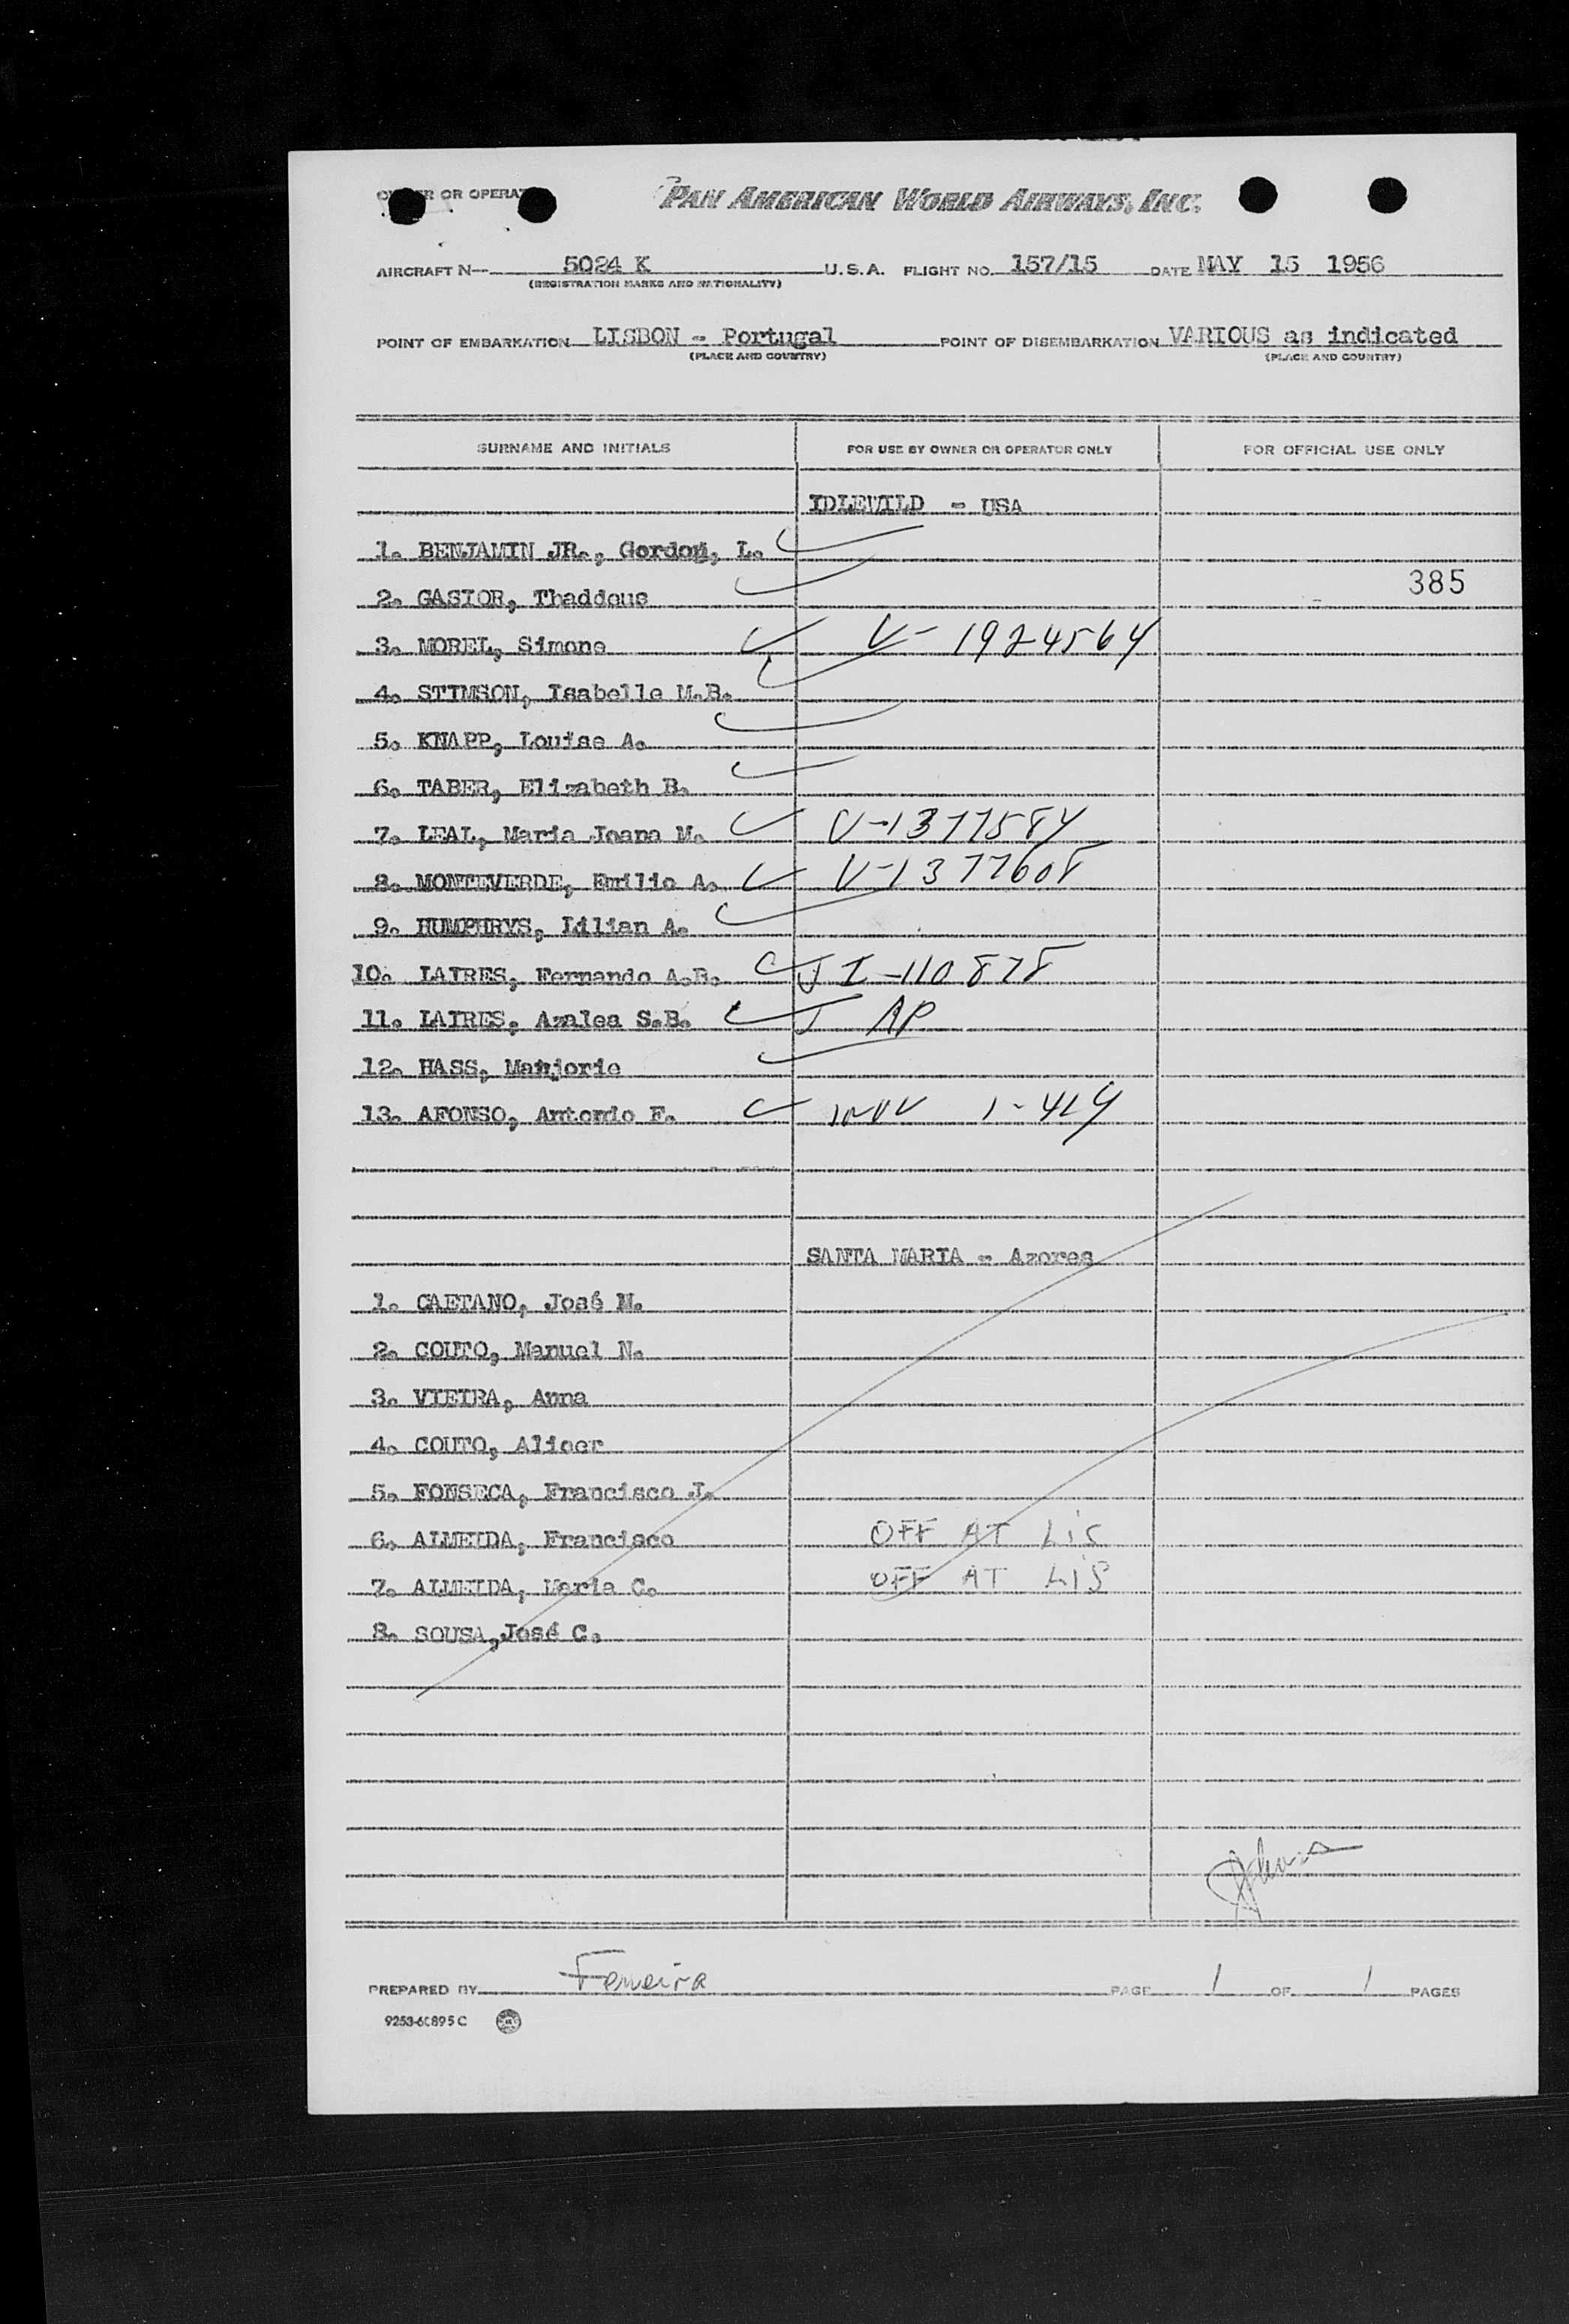 OWNER OR OPERATOR PAN AMERICAN WORLD AIRWAYS, INC.
AIRCRAFT N— 5024 K U.S.A. FLIGHT NO. 157/15 DATE MAY 15 1956
(REGISTRATION MARKS AND NATIONALITY)
POINT OF EMBARKATION LISBON - Portugal POINT OF DISEMBARKATION VARIOUS as indicated
(PLACE AND COUNTRY) (PLACE AND COUNTRY)
SURNAME AND INITIALS FOR USE BY OWNER OR OPERATOR ONLY FOR OFFICIAL USE ONLY
IDLEWILD - USA
1. BENJAMIN JR., Gordon, L.
385
2. GASIOR, Thaddous
3. MOREL, Simone V- 1924564
4. STIMSON, Isabelle M.B.
5. KNAPP, Louise A.
6. TABER, Elizabeth B.
7. LEAL, Maria Joana M. V-1377584
8. MONTEVERDE, Emilio A. V-1377608
9. HUMPHRYS, Lilian A.
10. LAIRES, Fernando A.B. I-110878
11. LAIRES, Azalea S.B. AP
12. HASS, Marjorie
13. AFONSO, Antonio F.
SANTA MARIA - Azores
1. CAETANO, José M.
2. COUTO, Manuel N.
3. VIEIRA, Anna
4. COUTO, Alicer
5. FONSECA, Francisco J.
6. ALMEIDA, Francisco OFF AT LIS
7. ALMEIDA, Maria C. OFF AT LIS
8. SOUSA, José C.
PREPARED BY Ferreira PAGE 1 OF 1 PAGES
9253-60895C